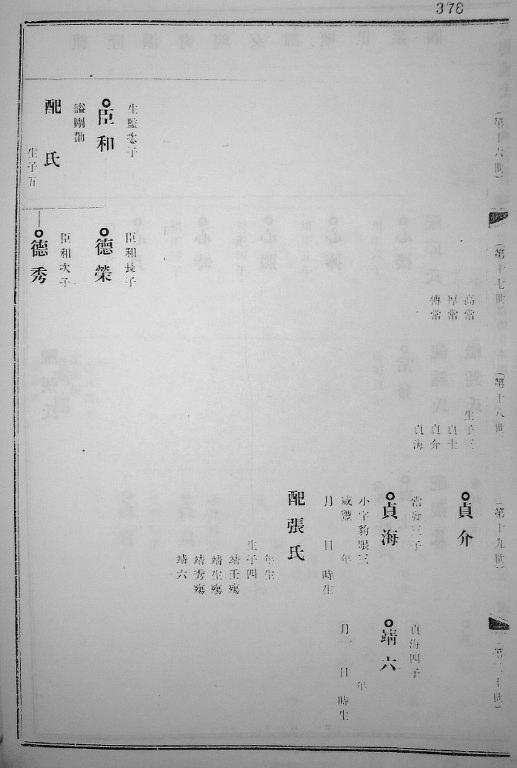 378
(第十六世)
(第十七世)
(第十八世)
(第十九世)
(第二十世)
高常
厚常
傅常
生子三
貞士
貞介
貞海
貞介
貞海
小字豹
咸豐 年
月 日 時生
配張氏
年生
生子四
靖壬殤
靖生殤
靖秀殤
靖六
靖六
貞海四子
年
月 日 時生
臣和
配 氏
生子五
德榮
臣和長子
德秀
臣和次子